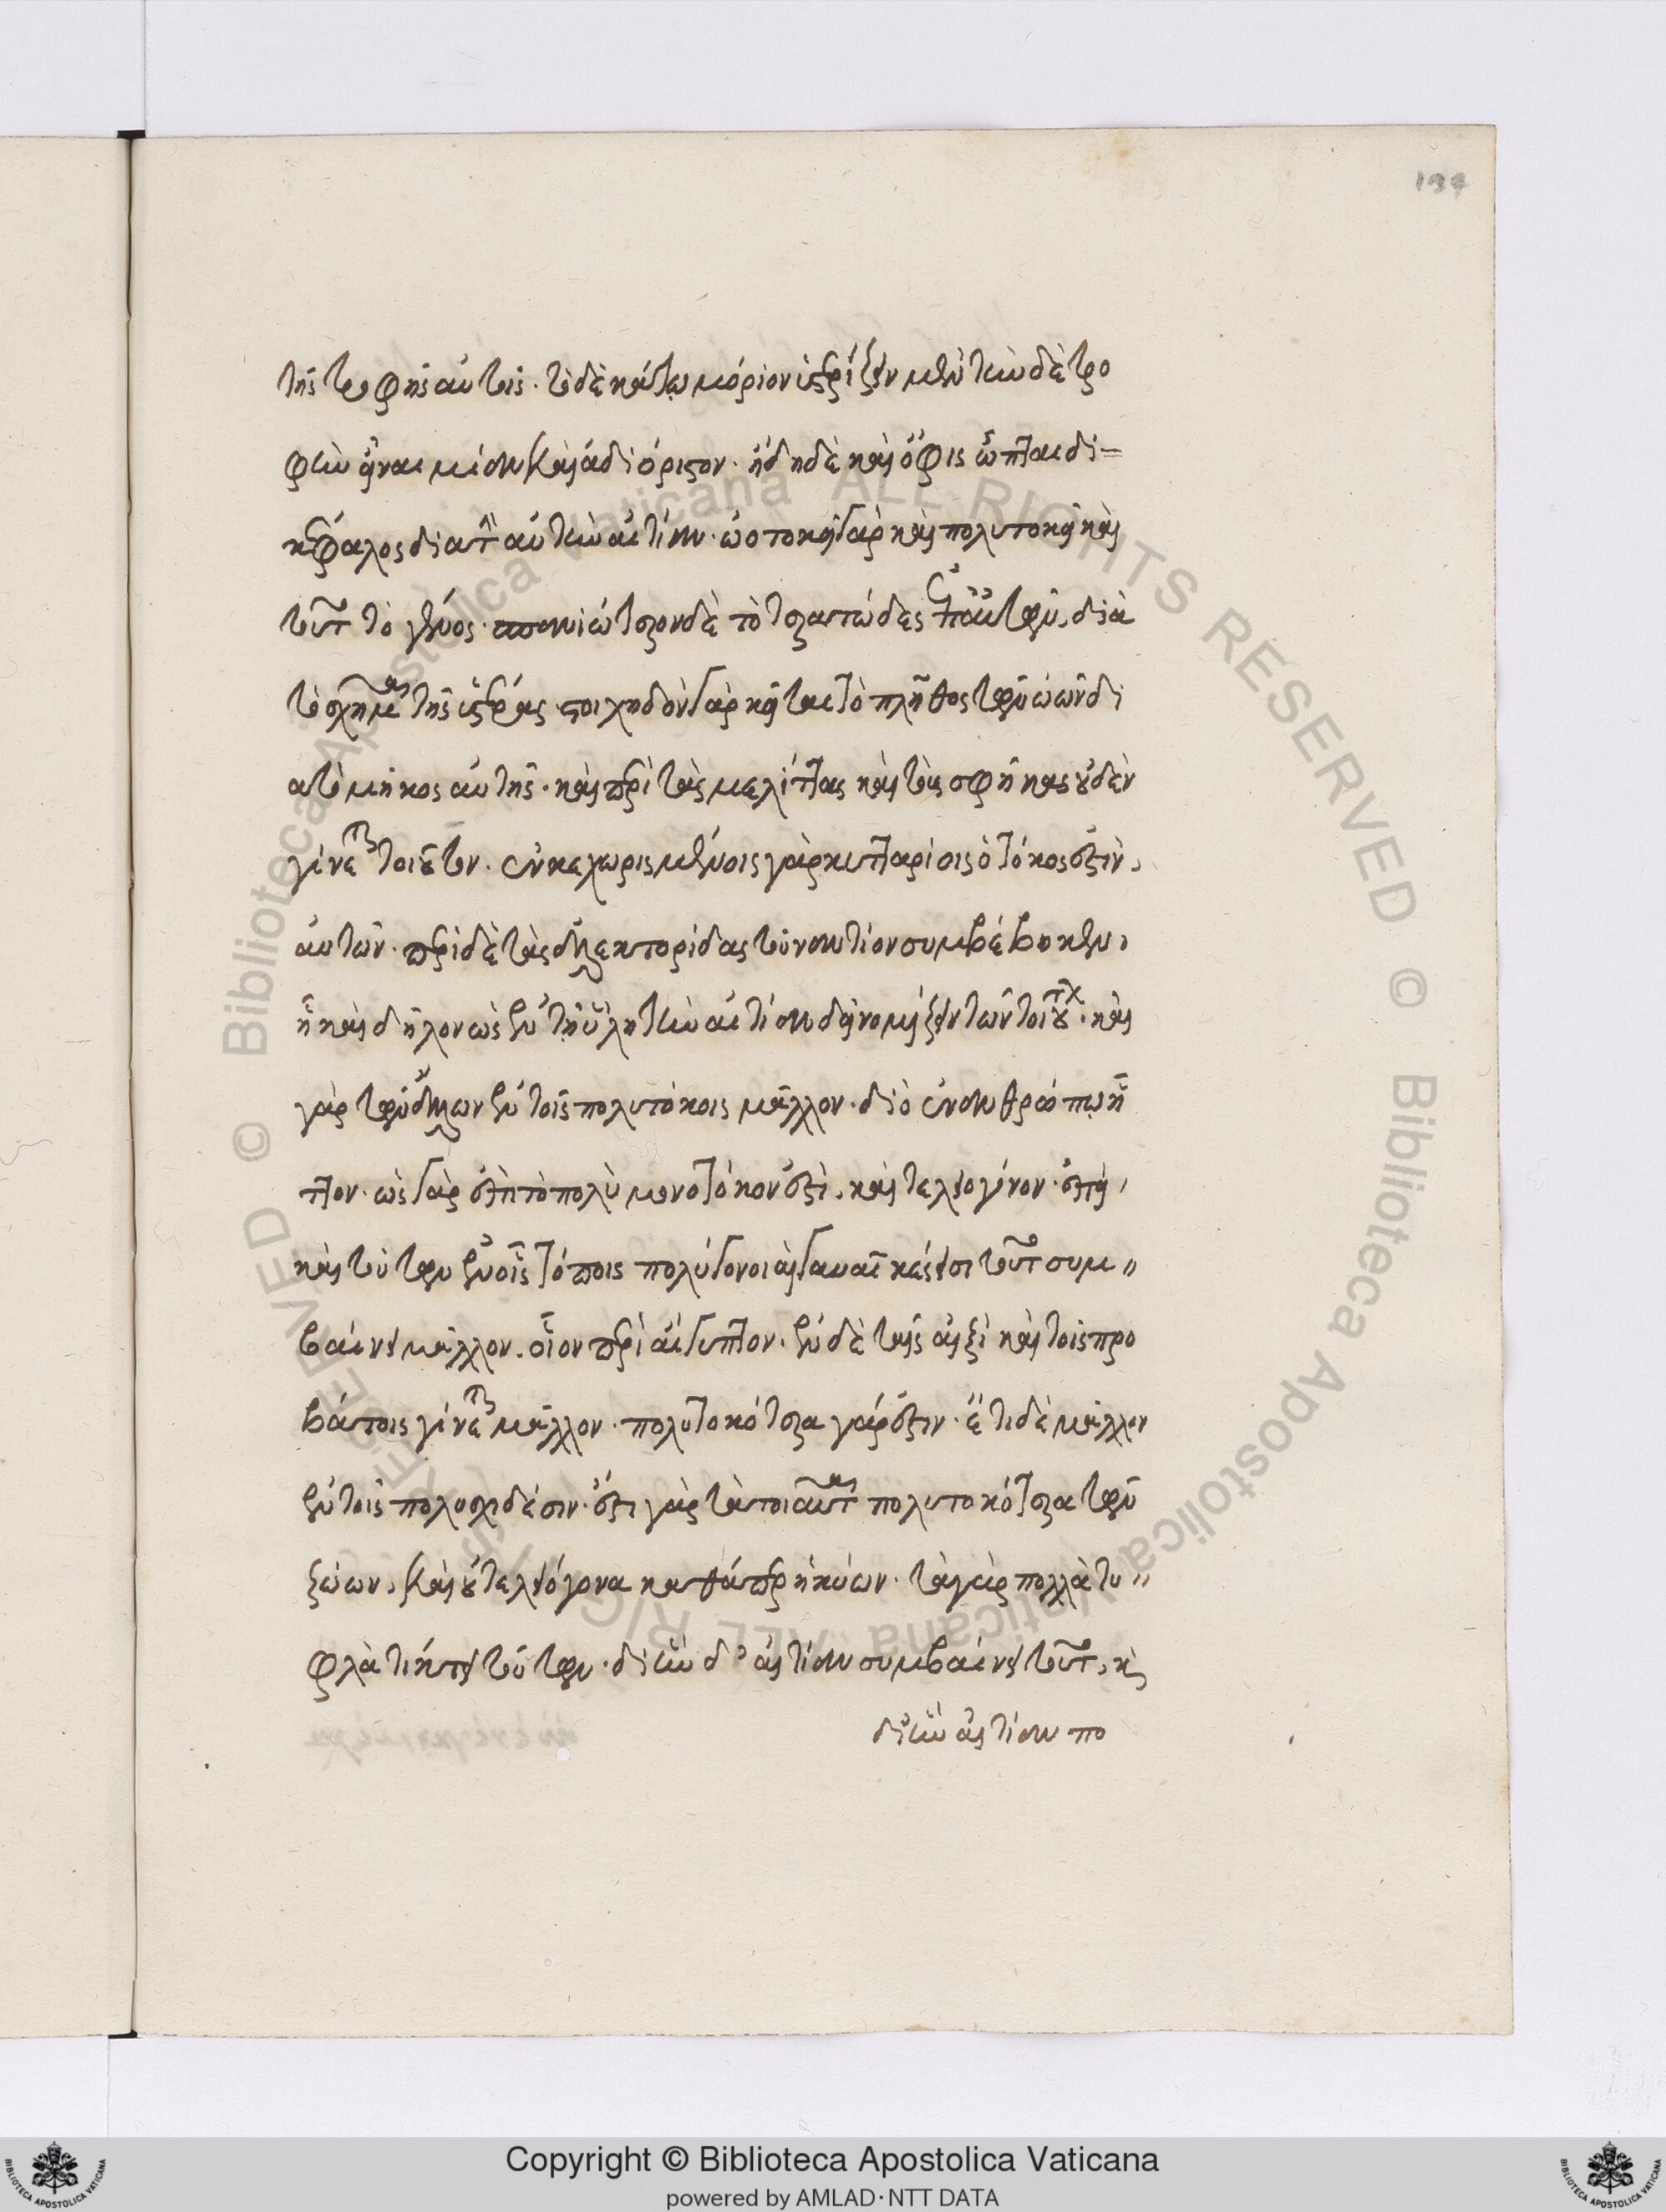 194
τῆς τροφῆς αὐτοῖς. τὸ δὲ κάτω μόριον ὑστερίζειν μὲν τὴν δὲ τρο
φὴν εἶναι μίαν καὶ ἀδιόριστον. ἤδη δὲ καὶ ὄφις ὦπται δι=
κέφαλος διὰ τ αὐτὴν αἰτίαν. ὠοτοκεῖ γὰρ καὶ πολυτοκεῖ καὶ
τοῦτο τὸ γένος. σπανιώτερον δὲ τὸ τερατῶδες ἐπ' αὐτῶν, διὰ
τὸ σχῆμα τῆς ὑστέρας. στοιχηδὸν γὰρ κεῖται τὸ πλῆθος τῶν ὠῶν δι
ὰ τὸ μῆκος αὐτῆς. καὶ περὶ τὰς μελίττας καὶ τὰς σφῆκας οὐδὲν
γίνεται τοιοῦτον. ἐν κεχωρισμένοις γὰρ κυτταρίοις ὁ τόκος ἐστὶν,
αὐτῶν. περὶ δὲ τὰς ἀλεκτορίδας τοὐναντίον συμβέβηκεν,
ᾗ καὶ δῆλον ὡς ἐν τῇ ὕλῃ τὴν αἰτίαν δεῖ νομίζειν τῶν τοιούτων. καὶ
γὰρ τῶν ἄλλων ἐν τοῖς πολυτόκοις μᾶλλον. διὸ ἐν ἀνθρώπῳ ἧ
ττον. ὡς γὰρ ἐπὶ τὸ πολὺ μονοτόκον ἐστὶ, καὶ τελειογόνον. ἐπεὶ,
καὶ τούτων ἐν οἷς τόποις πολύγονοι αἱ γυναῖκές εἰσι τοῦτο συμ"
βαίνει μᾶλλον. οἷον περὶ αἴγυπτον. ἐν δὲ ταῖς αἰξὶ καὶ τοῖς προ
βάτοις γίνεται μᾶλλον. πολυτοκώτερα γάρ ἐστιν. ἔτι δὲ μᾶλλον
ἐν τοῖς πολυσχιδέσιν. ἔστι γὰρ τὰ τοιαῦτα πολυτοκώτερα τῶν
ζώων, καὶ οὐ τελειόγονα καθάπερ ἡ κύων. τὰ γὰρ πολλὰ τυ"
φλὰ τίκτει τούτων. δι ἣν δ' αἰτίαν συμβαίνει τοῦτο, καὶ
δι ἣν αἰτίαν πο
Copyright © Biblioteca Apostolica Vaticana
powered by AMLAD·NTT DATA